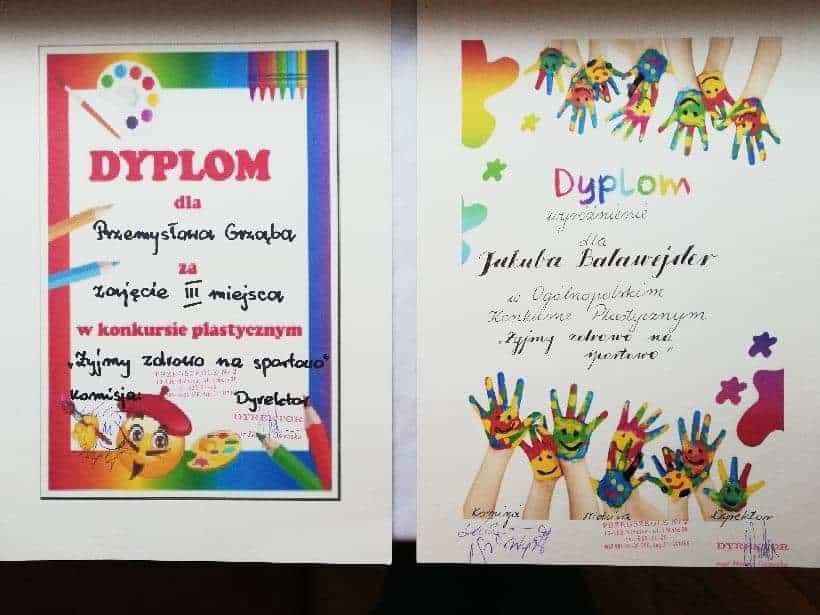 DYPLOM
dla
Przemysława Grząba
za
zajęcie III miejsca
w konkursie plastycznym
„Żyjmy zdrowo na sportowo"
Komisja: Dyrektor
PRZEDSZKOLE Nr 2
DYREKTOR
Dyplom
wyróżnienie
dla
Jakuba Balawejder
w Ogólnopolskim
Konkursie Plastycznym
„Żyjmy zdrowo na
sportowo"
Komisja Dyrektor
PRZEDSZKOLE Nr 2
DYREKTOR